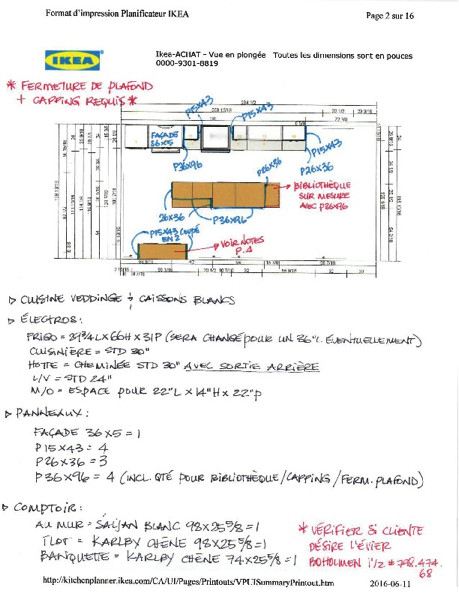 Format d'impression Planificateur IKEA Page 2 sur 16
IKEA
Ikea-ACHAT - Vue en plongée Toutes les dimensions sont en pouces
0000-9301-8819
* FERMETURE DE PLAFOND
+ CAPPING REQUIS *
P15X43 P15X43
FAÇADE
36X5
P15X43
P36X96 P26X36 P26X36
BIBLIOTHÈQUE
SUR MESURE
AVEC P36X96
26X36 P36X96
P15X43 COUPÉ
EN 2
VOIR NOTES
P.4
▷ CUISINE VEDDINGE & CAISSONS BLANCS
▷ ÉLECTROS:
FRIGO = 29 3/4 L X 66H X 31P (SERA CHANGÉ POUR UN 36"L ÉVENTUELLEMENT)
CUISINIÈRE = STD 30"
HOTTE = CHEMINÉE STD 30" AVEC SORTIE ARRIÈRE
L/V = STD 24"
M/O = ESPACE POUR 22"L X 14"H X 22"P
▷ PANNEAUX:
FAÇADE 36X5 = 1
P15X43 = 4
P26X36 = 3
P36X96 = 4 (INCL. QTÉ POUR BIBLIOTHÈQUE/CAPPING/FERM. PLAFOND)
▷ COMPTOIR:
AU MUR = SÄLJAN BLANC 98X25 5/8 = 1
ÎLOT = KARLBY CHÊNE 98X25 5/8 = 1
BANQUETTE = KARLBY CHÊNE 74X25 5/8 = 1
* VÉRIFIER SI CLIENTE
DÉSIRE L'ÉVIER
BOHOLMEN 1 1/2 # 798.474.
68
http://kitchenplanner.ikea.com/CA/UI/Pages/Printouts/VPUISummaryPrintout.htm 2016-06-11